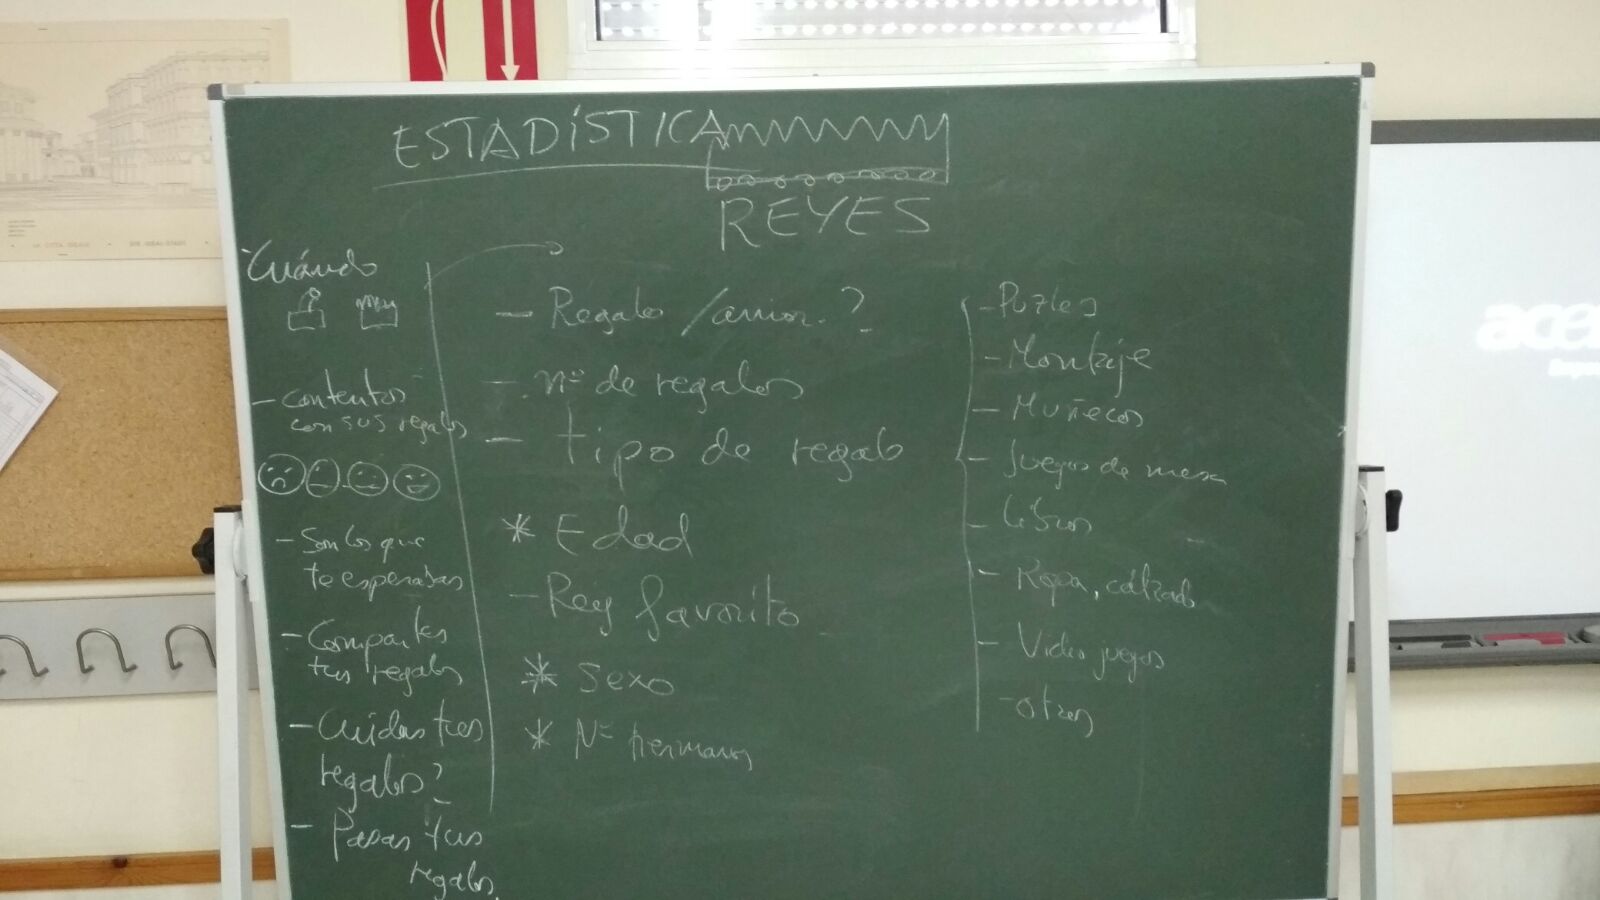 ESTADÍSTICA
REYES
Cuándo
- contentos
con sus regalos
- Son los que
te esperabas
- Compartes
tus regalos
- Cuidas tus
regalos?
- Pasas tus
regalos
- Regalo / ?
- nº de regalos
- tipo de regalo
* Edad
- Rey favorito
* Sexo
* Nº hermanos
- Puzles
- Montaje
- Muñecos
- Juegos de mesa
- Libros
- Ropa, calzado
- Video juegos
- otros
acer